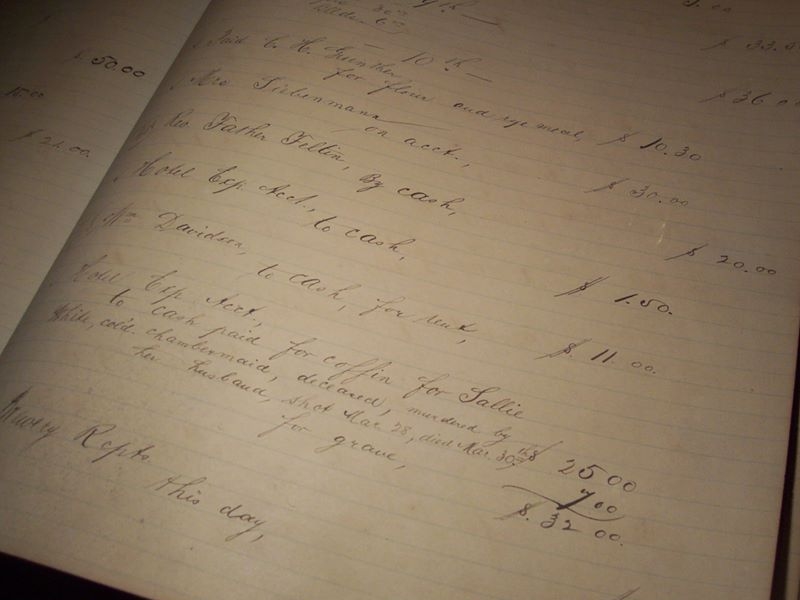 $ 50.00
15.00
$ 21.00
7th
$ 33.
10th
$ 36.00
Paid C. H. Guenther,
for flour and rye meal, $ 10.30
Mrs Siebenmann
on acct., $ 30.00
Rev Father Feltin, By cash, $ 20.00
Hotel Exp. Acct., to cash, $ 1.50.
Mr Davidson, to cash, for rent, $ 11.00.
Hotel Exp. Acct.,
to cash paid for coffin for Sallie
White, cold. chambermaid, deceased, murdered by
her husband, shot Mar. 28, died Mar. 30, $ 25 00
for grave, 7 00
$. 32 00.
Repts. this day,